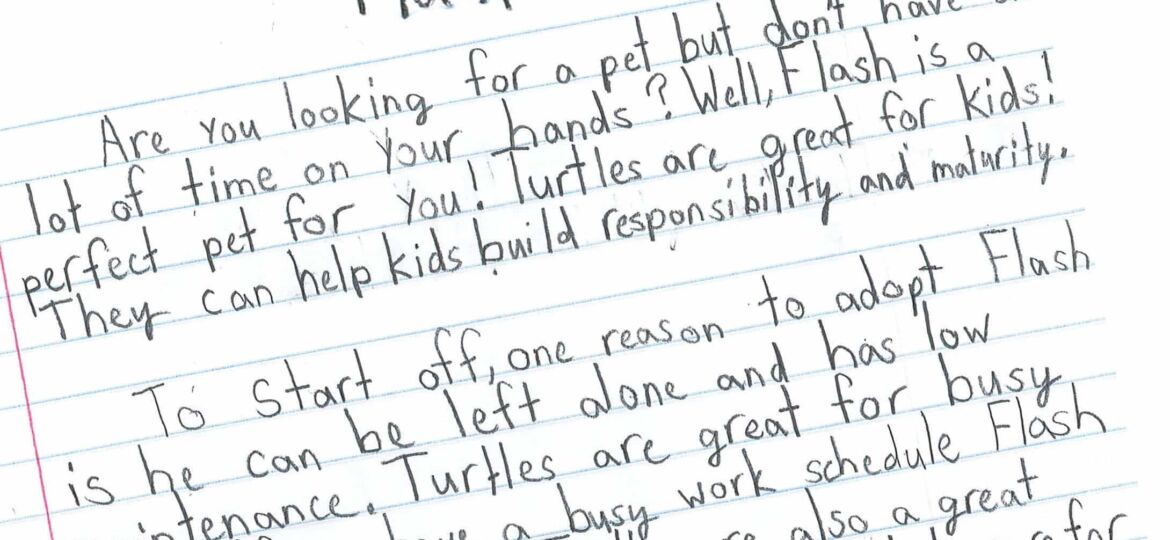 Are you looking for a pet but don't have
lot of time on your hands? Well, Flash is a
perfect pet for you! Turtles are great for kids!
They can help kids build responsibility and maturity.
To start off, one reason to adopt Flash
is he can be left alone and has low
intenance. Turtles are great for busy
a busy work schedule Flash
also a great
for